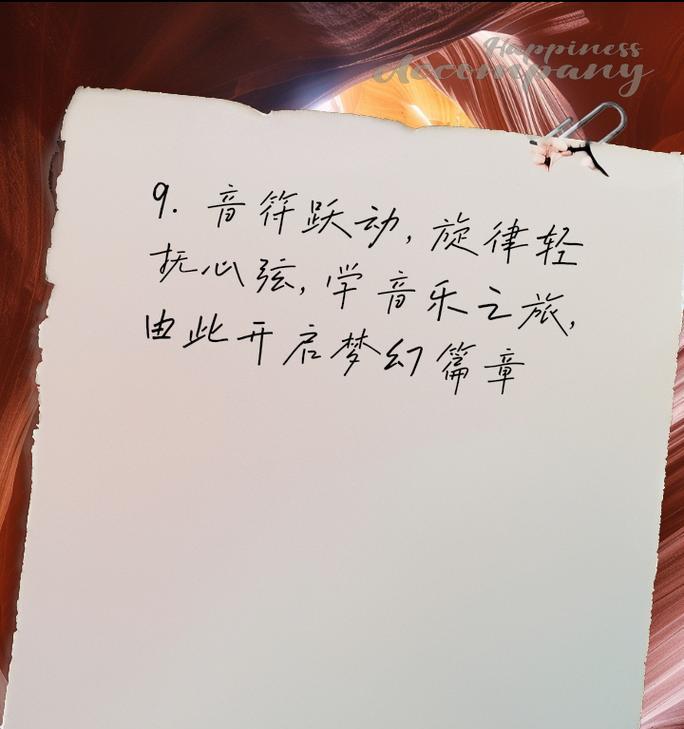 Happiness
accompany
9. 音符跃动, 旋律轻
抚心弦, 学音乐之旅,
由此开启梦幻篇章